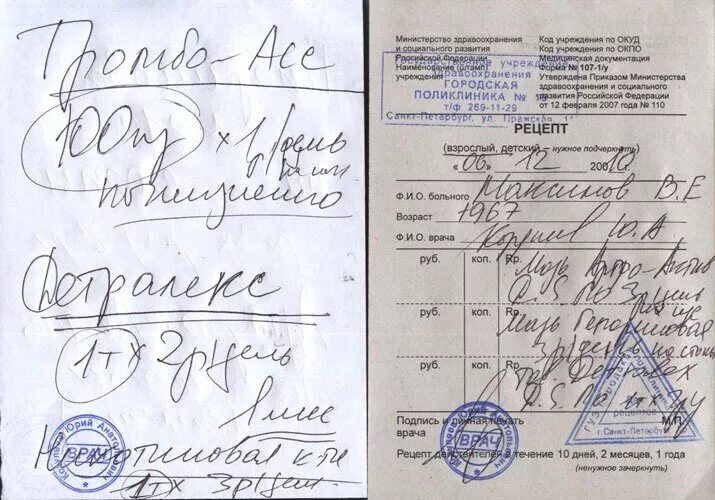 Тромбо-Асс
100 мг x 1 р/день
пожизненно
Детралекс
1т x 2р/день
1 мес
Никотиновая к-та
1т x 3р/день
ВРАЧ
Юрий Анатольевич
Министерство здравоохранения
и социального развития
Российской Федерации
Наименование (штамп)
учреждения
Код учреждения по ОКУД
Код учреждения по ОКПО
Медицинская документация
Форма № 107-1/у
Утверждена Приказом Министерства
здравоохранения и социального
развития Российской Федерации
от 12 февраля 2007 года № 110
Государственное учреждение
здравоохранения
ГОРОДСКАЯ
ПОЛИКЛИНИКА №
т/ф 269-11-29
Санкт-Петербург, ул. Пражская,
РЕЦЕПТ
(взрослый, детский – нужное подчеркнуть)
« 06 » 12 2010 г.
Ф.И.О. больного Максимов В.Е
Возраст 1967
Ф.И.О. врача Ю.А
руб. коп. Rp. Мазь Артро-Актив
D.S. По 3р/день
руб. коп. Rp. Мазь Гепариновая
3р/день на стопы
руб. коп. Rp. Detralex
D.S. По 1т x 2р
Подпись и личная печать
врача
М.П.
ВРАЧ
рецептов
г. Санкт-Петербург
Рецепт действителен в течение 10 дней, 2 месяцев, 1 года
(ненужное зачеркнуть)